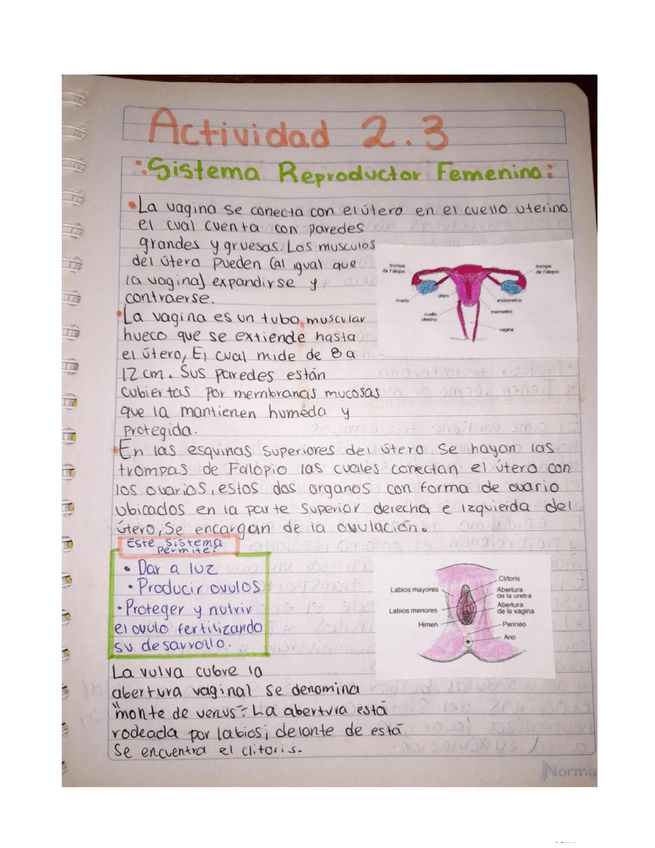 Actividad 2.3
:Sistema Reproductor Femenino:
•La vagina se conecta con el útero en el cuello uterino
el cual cuenta con paredes
grandes y gruesas. Los musculos
del útero pueden (al igual que
la vagina) expandirse y
contraerse.
trompa
de Falopio
trompa
de Falopio
ovario
útero
endometrio
cuello
uterino
miometrio
vagina
•La vagina es un tubo muscular
hueco que se extiende hasta
el útero, El cual mide de 8 a
12 cm. Sus paredes están
cubiertas por membranas mucosas
que la mantienen humeda y
protegida.
•En las esquinas superiores del útero se hayan las
trompas de Falopio las cuales conectan el útero con
los ovarios, estos dos organos con forma de ovario
ubicados en la parte superior derecha e izquierda del
útero, se encargan de la ovulación.
Este sistema
permite:
• Dar a luz
• Producir ovulos
• Proteger y nutrir
el ovulo fertilizando
su desarrollo.
Clítoris
Labios mayores
Abertura
de la uretra
Labios menores
Abertura
de la vagina
Himen
Perineo
Ano
La vulva cubre la
abertura vaginal se denomina
"monte de venus". La abertura está
rodeada por labios; delante de está
se encuentra el clitoris.
Norma